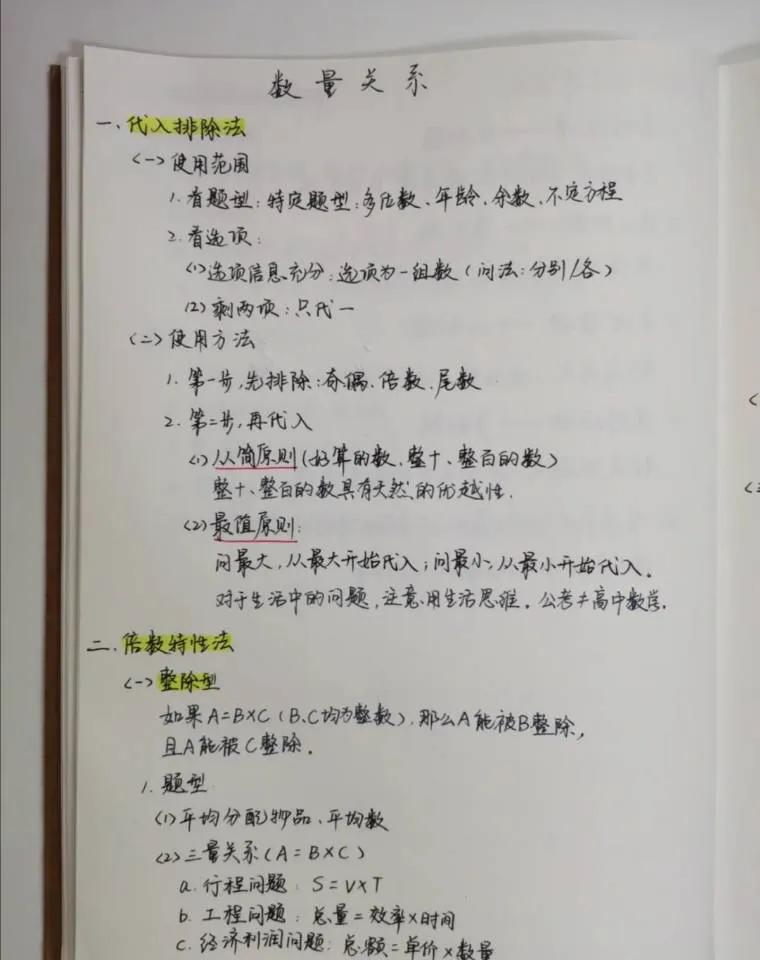 数量关系
一.代入排除法
<一>使用范围
1.看题型:特定题型:多位数、年龄、余数、不定方程
2.看选项:
(1)选项信息充分:选项为一组数(问法:分别/各)
(2)剩两项:只代一
(二)使用方法
1.第一步,先排除:奇偶、倍数、尾数
2.第二步,再代入
(1)从简原则(好算的数、整十、整百的数)
整十、整百的数具有天然的优越性.
(2)最值原则:
问最大,从最大开始代入;问最小,从最小开始代入。
对于生活中的问题,注意用生活思维。公考≠高中数学.
二.倍数特性法
(一)整除型
如果A=B×C(B、C均为整数),那么A能被B整除,
且A能被C整除。
1.题型
(1)平均分配物品、平均数
(2)三量关系(A=B×C)
a.行程问题:S=V×T
b.工程问题:总量=效率×时间
c.经济利润问题:总额=单价×数量